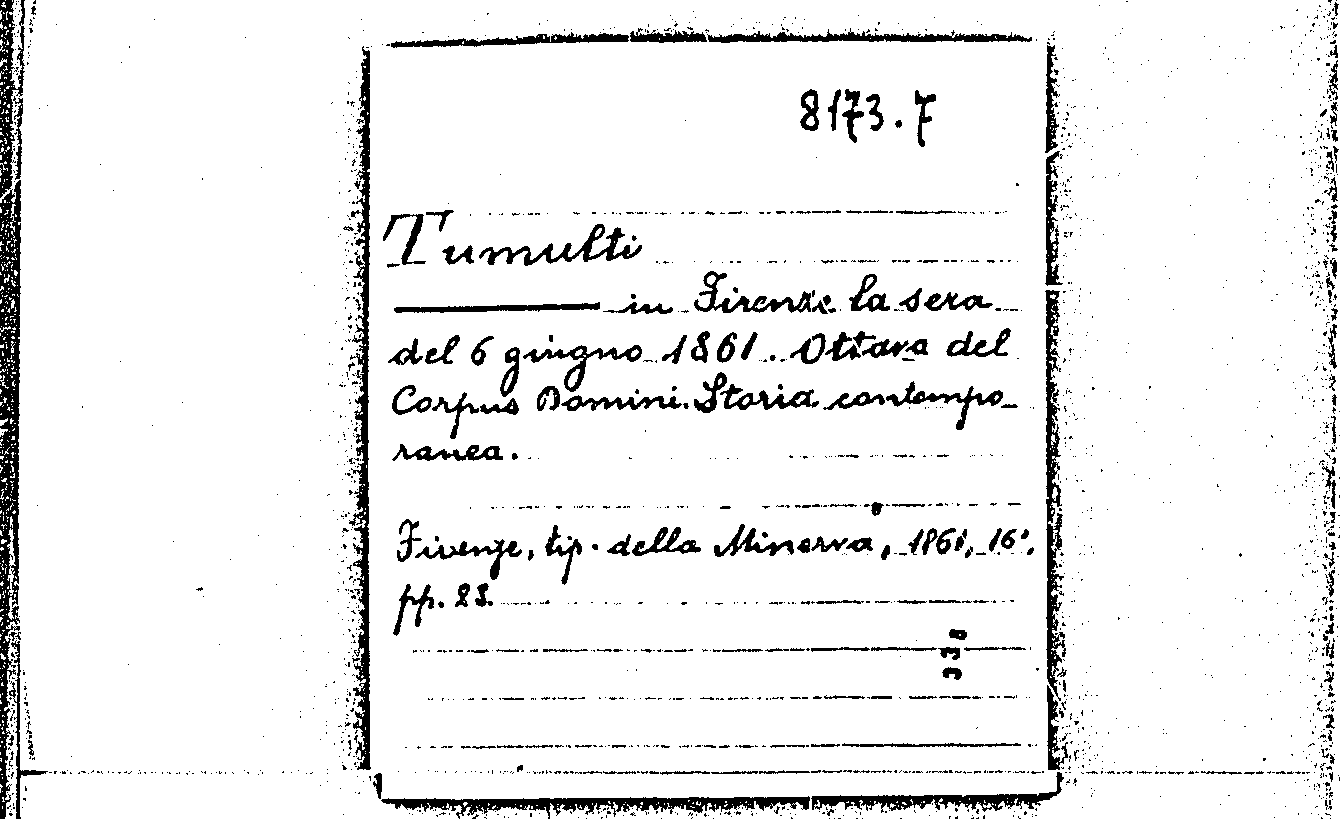 8173.7
Tumulti
in Firenze la sera
del 6 giugno 1861. Ottava del
Corpus Domini. Storia contempo-
ranea.
Firenze, tip. della Minerva, 1861, 16°,
pp. 23.
338